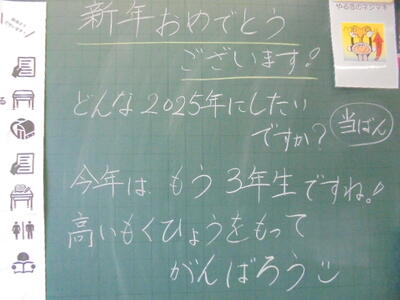 新年おめでとう
ございます!
どんな2025年にしたい
ですか?
当ばん
今年は もう 3年生ですね!
高いもくひょうをもって
がんばろう
やる気のネジマキ